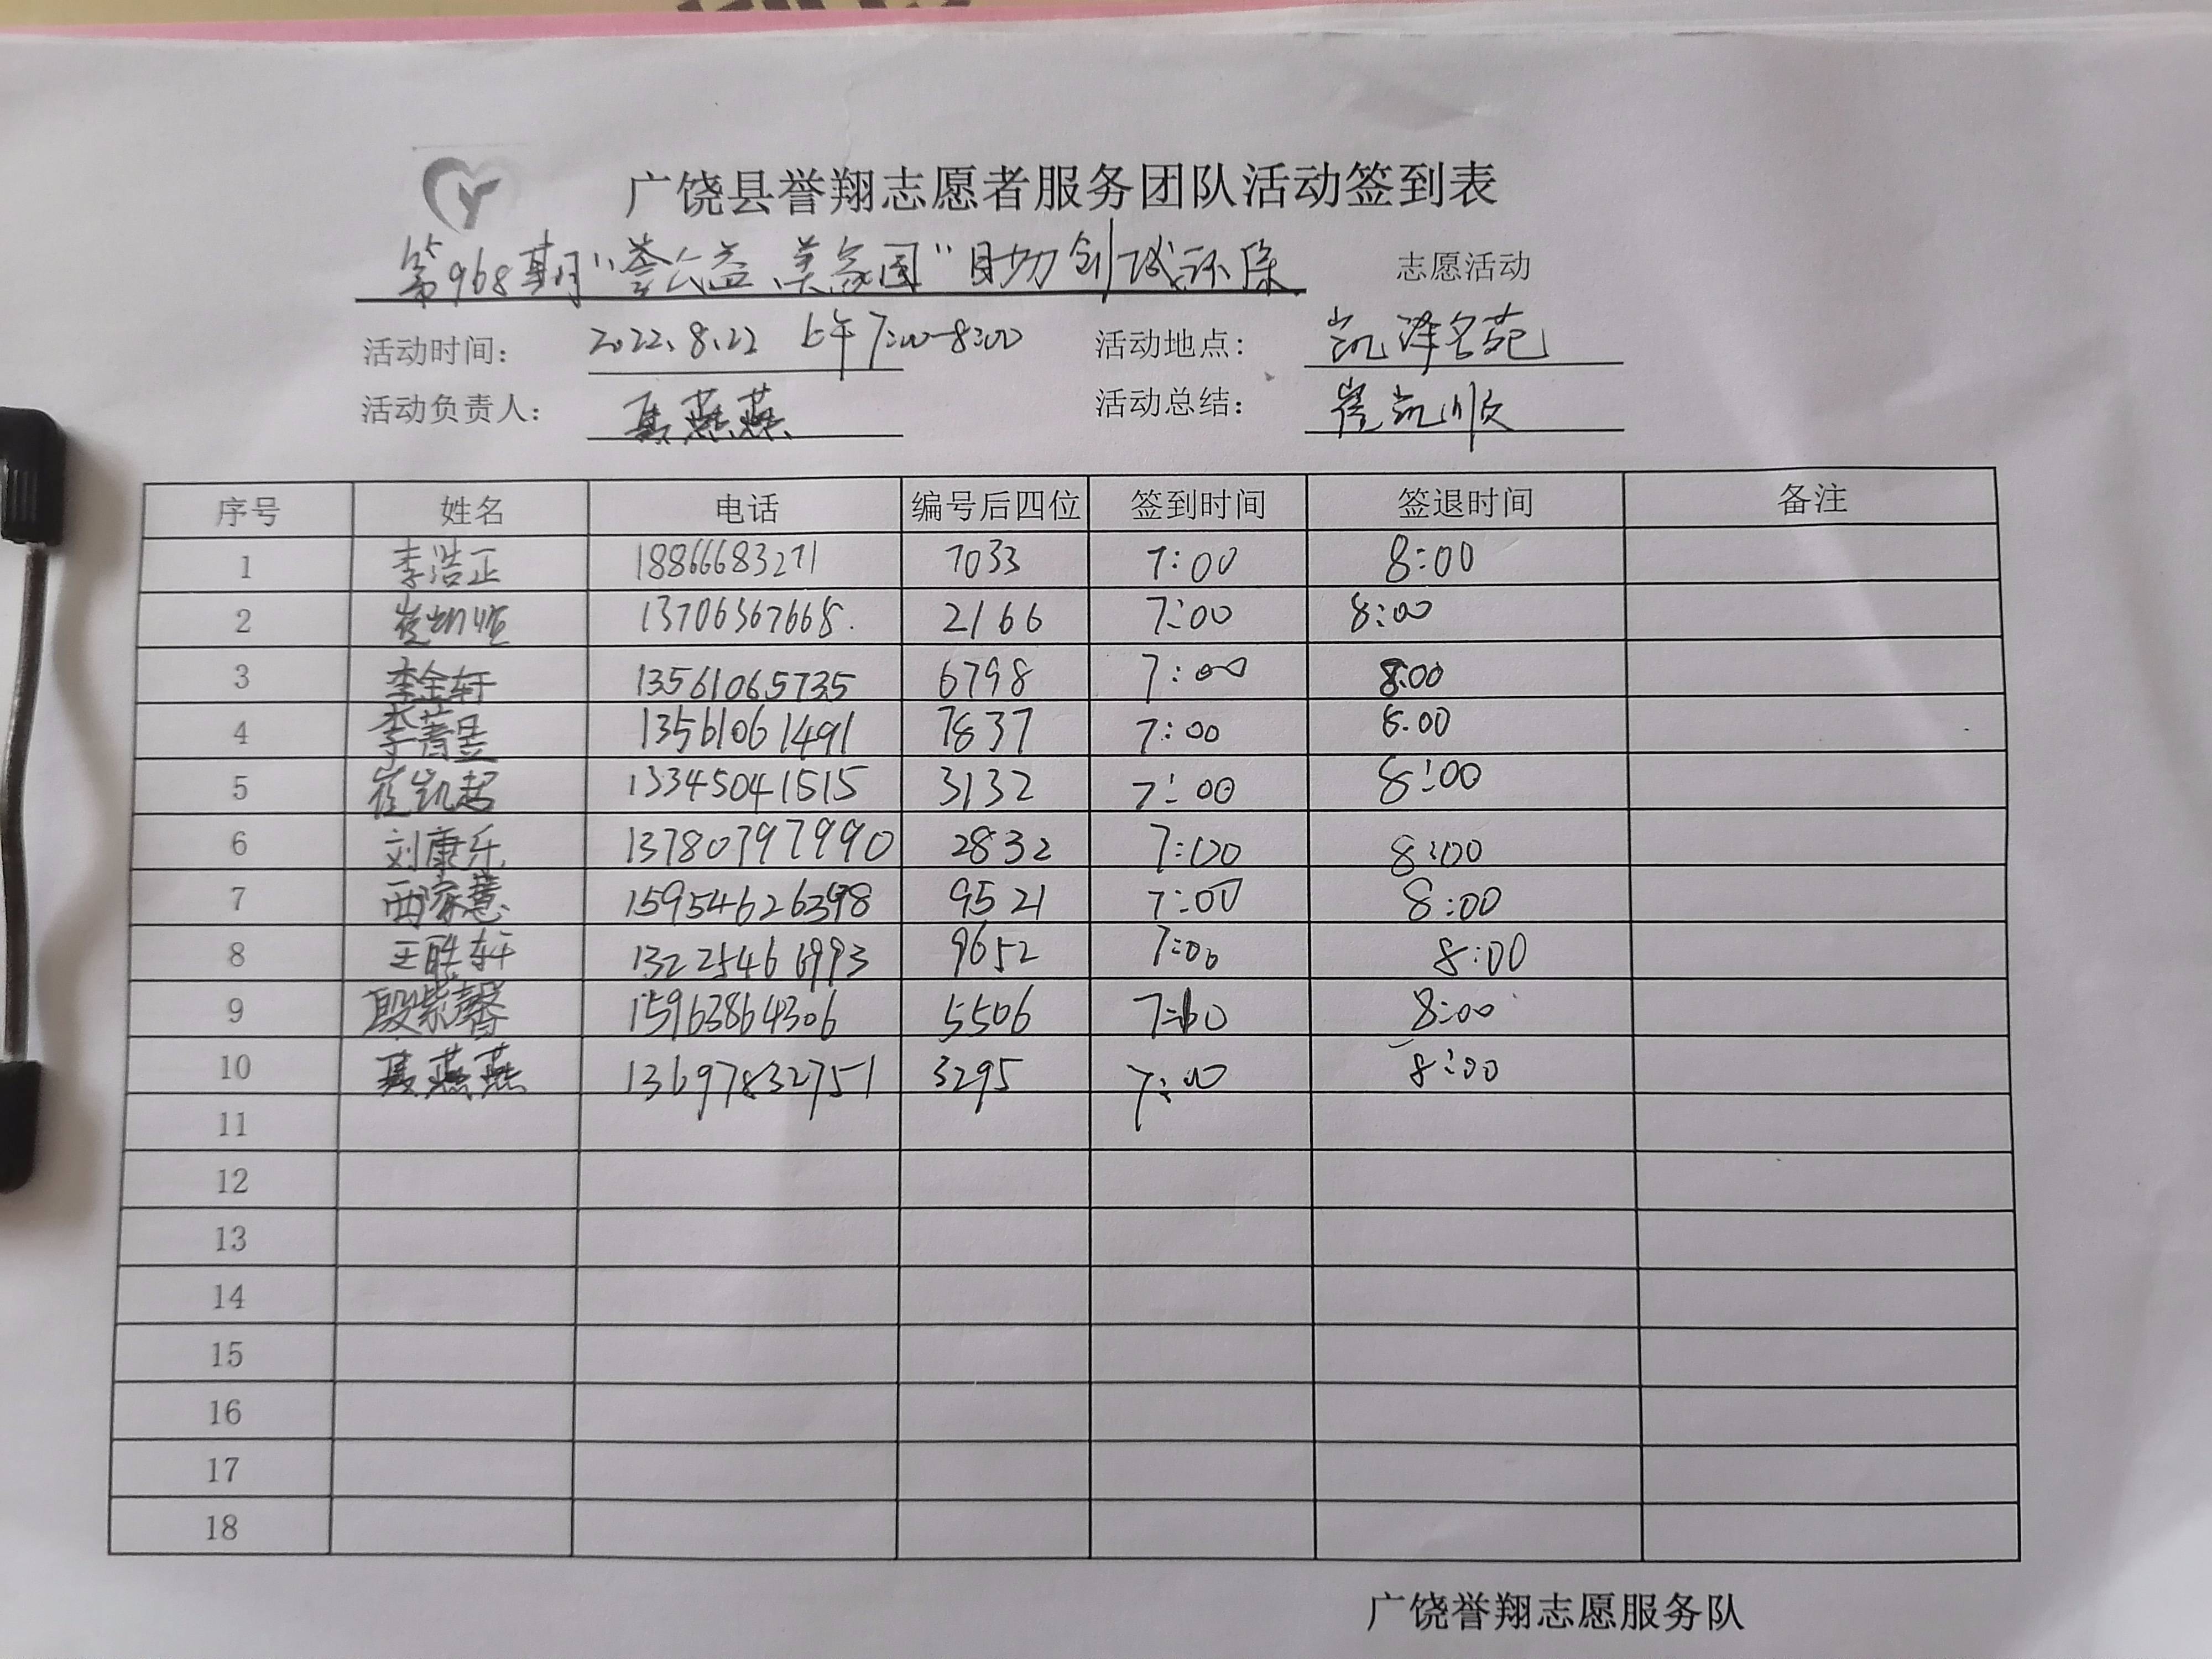 广饶县誉翔志愿者服务团队活动签到表
第968期"誉公益、美家园"助力创城环保 志愿活动
活动时间: 2022.8.22 上午7:00-8:00 活动地点: 凯泽名苑
活动负责人: 聂燕燕 活动总结: 崔凯顺
序号 姓名 电话 编号后四位 签到时间 签退时间 备注
1 李浩正 18866683271 7033 7:00 8:00
2 崔凯顺 13706367668. 2166 7:00 8:00
3 李金轩 13561065735 6798 7:00 8:00
4 李菁昱 13561061491 7837 7:00 8.00
5 崔凯超 13345041515 3132 7:00 8:00
6 刘康乐 13780797990 2832 7:00 8:00
7 西家慧 15954626398 9521 7:00 8:00
8 王皓轩 13225466993 9652 7:00 8:00
9 殷紫馨 15963864306 5506 7:00 8:00
10 聂燕燕 13697832751 3295 7:00 8:00
11
12
13
14
15
16
17
18
广饶誉翔志愿服务队